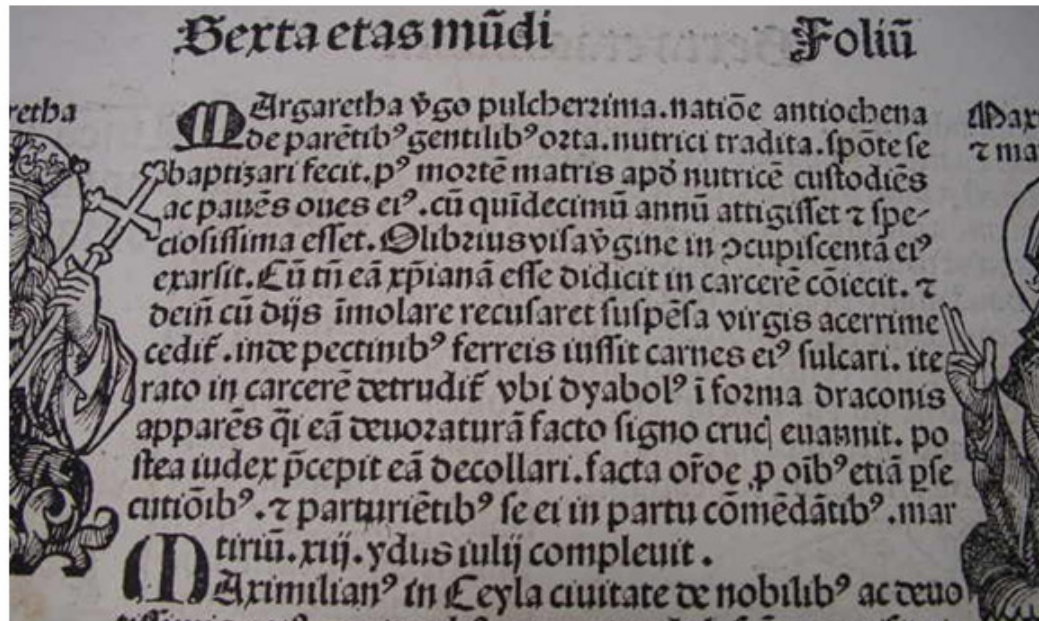 Sexta etas mũdi Foliũ
retha
MArgaretha v̾go pulcherrima. natiõe antiochena
de parẽtibꝰ gentilibꝰ orta. nutrici tradita. spõte se
baptizari fecit. pꝰ mortẽ matris apđ nutricẽ custodiẽs
ac pauẽs oues eiꝰ. cũ quĩdecimũ annũ attigisset ⁊ spe-
ciosissima esset. Olibrius visa v̾gine in ↄcupiscentã eiꝰ
exarsit. Cũ tñ eã xp̃ianã esse didicit in carcerẽ cõiecit. ⁊
deiñ cũ dijs ĩmolare recusaret suspẽsa virgis acerrime
cedit᷑. inde pectinibꝰ ferreis iussit carnes eiꝰ sulcari. ite
rato in carcerẽ detrudit᷑ vbi dyabolꝰ ĩ forma draconis
apparẽs q̃i eã deuoraturã facto signo crucꝭ euannit. po
stea iudex p̃cepit eã decollari. facta or̃oe ꝓ oĩbꝰ etiã ꝑse
cutiõibꝰ. ⁊ parturiẽtibꝰ se ei in partu cõmẽdãtibꝰ. mar
tiriũ. xiij. ydus iulij compleuit.
MAximilianꝰ in Ceyla ciuitate de nobilibꝰ ac deuo
Maxi
⁊ ma